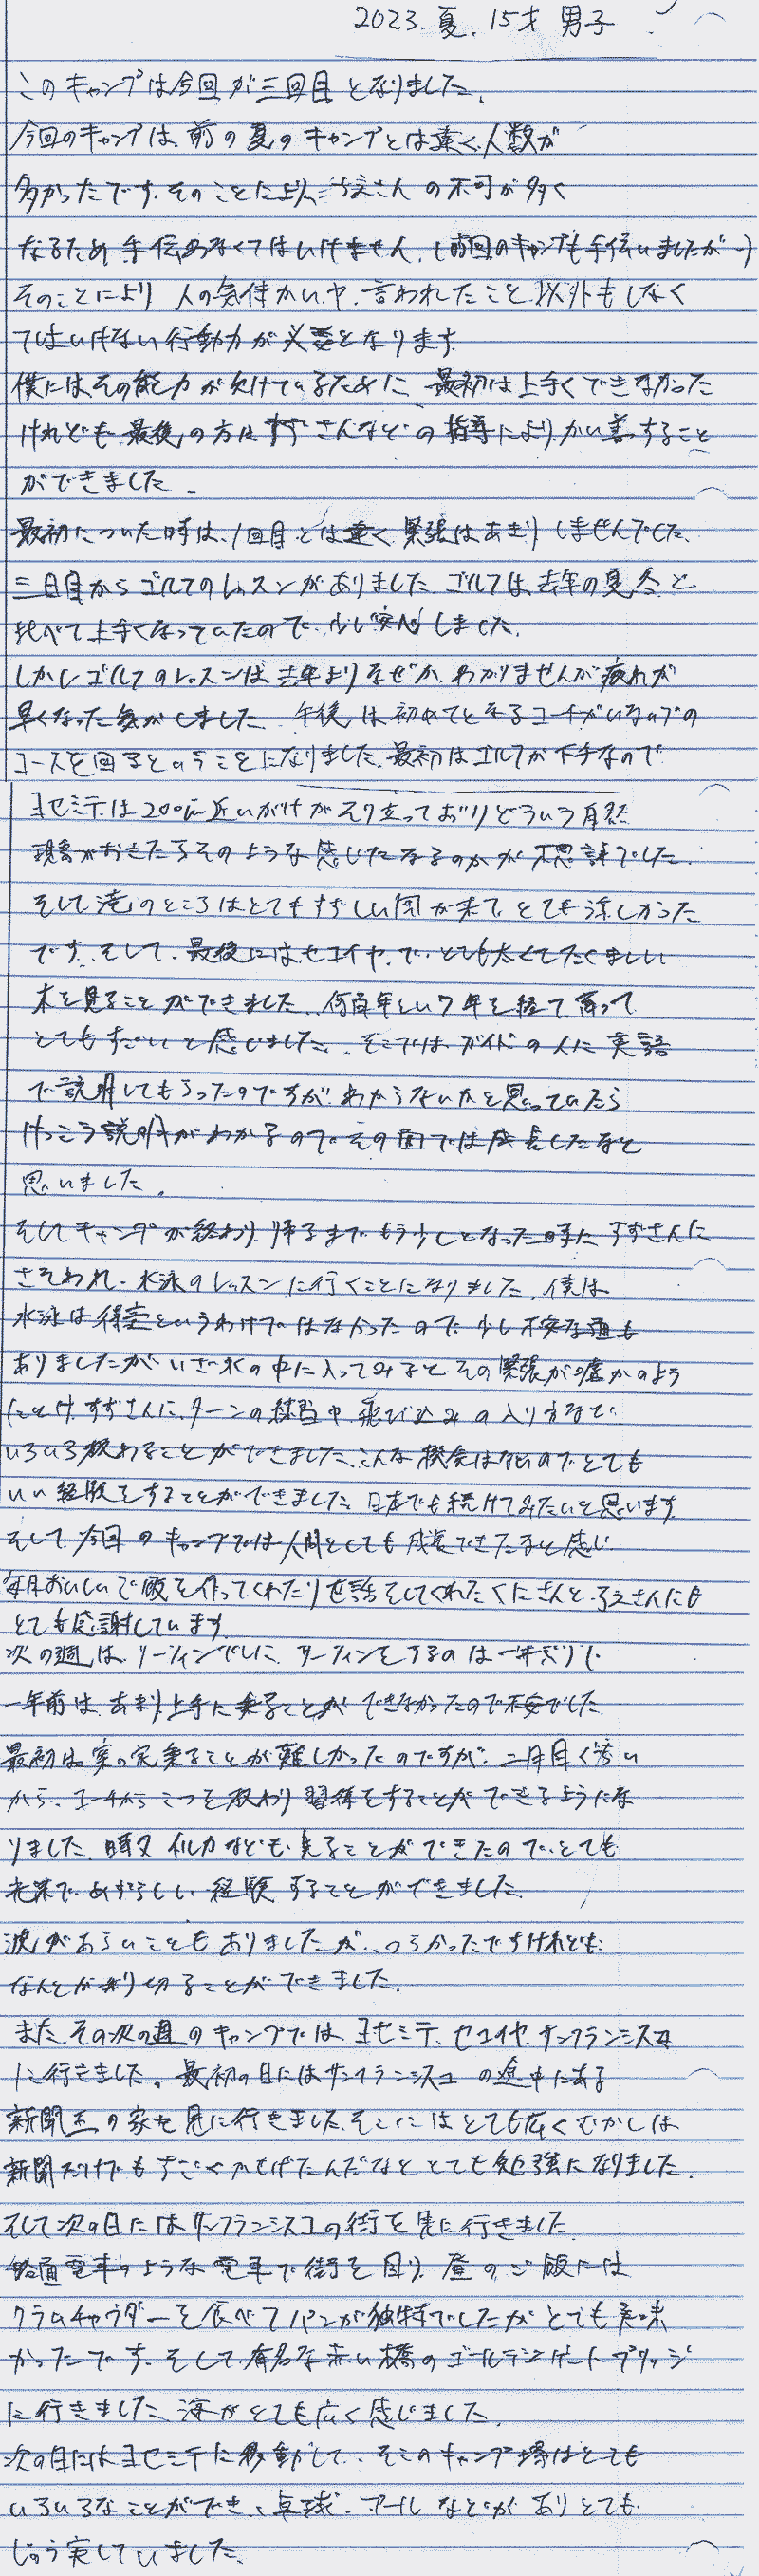 2023.夏.15才 男子
このキャンプは今回が三回目となりました。
今回のキャンプは、前の夏のキャンプとは違く、人数が
多かったです。そのことにより、 さんの不可が多く
なるため手伝わなくてはいけません。(前回のキャンプも手伝いましたが…)
そのことにより 人の気使かいや、言われたこと以外もしなく
てはいけない行動力が必要となります。
僕にはその能力が欠けているために 最初は上手くできなかった
けれども、最後の方は すずさんなどの指導により、かい善すること
ができました。
最初についた時は、1回目とは違く、緊張はあまりしませんでした。
三日目からゴルフのレッスンがありました ゴルフは、去年の夏冬と
比べて上手くなっていたので、少し安心しました。
しかしゴルフのレッスンは、去年よりなぜか、わかりませんが疲れが
早くなった気がしました 午後は初めてとなるコーチがいるので
コースを回るということになりました。最初はゴルフが下手なので
ヨセミテは200m近いがけがそり立っておりどういう自然
現象がおきたらそのような感じになるのかが不思議でした。
そして滝のところはとてもすずしい風が来て、とても涼しかった
です。そして、最後にはセコイヤ、で、とても太くてたくましい
木を見ることができました、何百年という年を経て、育って
とてもすごいと感じました。そこでは、ガイドの人に英語
で説明してもらったのですが、わからないかと思っていたら
けっこう説明がわかるので、その面では成長したなと
思いました。
そしてキャンプが終わり、帰るまでもう少しとなった時に すずさんに
さそわれ、水泳のレッスンに行くことになりました、僕は
水泳は得意というわけではなかったので、少し不安な面も
ありましたが、いざ水の中に入ってみると、その緊張が嘘かのよう
にとけ、すずさんに、ターンの練習や、飛び込みの入り方など
いろいろ教わることができました、こんな機会はないのでとても
いい経験をすることができました、日本でも続けてみたいと思います。
そして、今回のキャンプでは人間としても成長できたなと感じ
毎日おいしいご飯を作ってくれたりお世話をしてくれたくにさんと さんにも
とても感謝しています。
次の週は、サーフィンでした、サーフィンをするのは一年ぶりで
一年前は、あまり上手に乗ることができなかったので不安でした
最初は案の定乗ることが難しかったのですが、二日目くらい
から、コーチからこつを教わり習得をすることができるようにな
りました、時々イルカなども見ることができたので、とても
光栄で、めずらしい経験することができました。
波があらいこともありましたが、つらかったですけれども、
なんとか乗り切ることができました。
また、その次の週のキャンプでは、ヨセミテ、セコイヤ、サンフランシスコ
に行きました。最初の日にはサンフランシスコの途中にある
新聞王の家を見に行きました。そこにはとても広くむかしは
新聞だけでもすごくかせげたんだなと、とても勉強になりました。
そして次の日にはサンフランシスコの街を見に行きました
路面電車のような電車で街を回り、昼のご飯には
クラムチャウダーを食べてパンが独特でしたがとても美味
かったです。そして、有名な赤い橋のゴールデンゲートブリッジ
に行きました、海がとても広く感じました。
次の日にはヨセミテに移動して、そこのキャンプ場はとても
いろいろなことができ、卓球、プールなどがありとても
じゅう実していました。